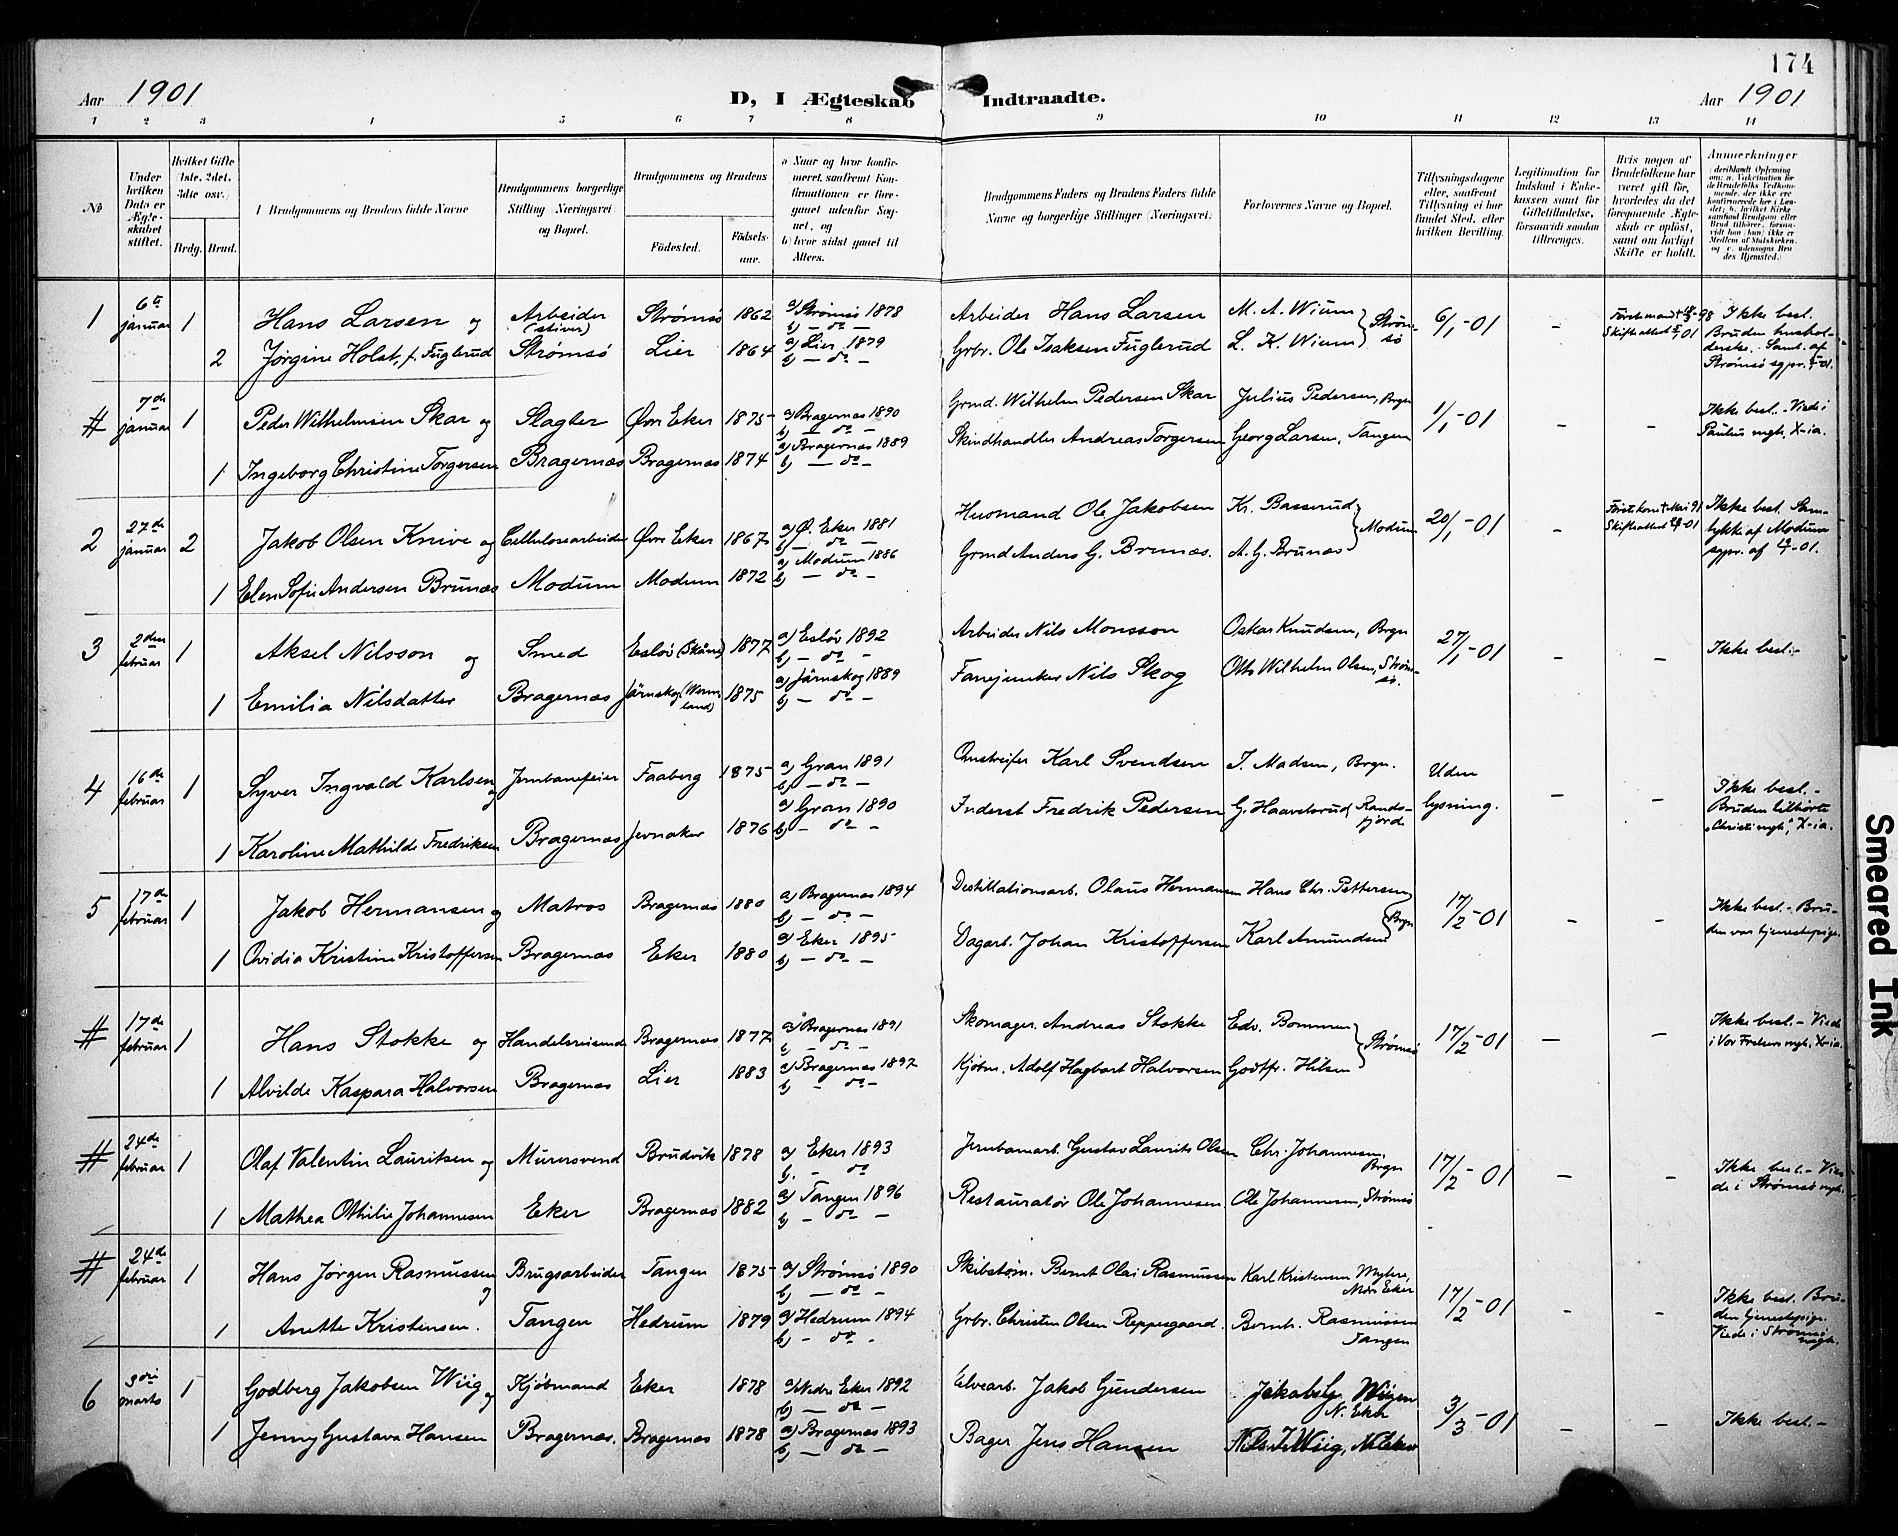 174
Aar 1901
D, I Ægteskab Indtraadte.
Aar 1901
1 2 3 4 5 6 7 8 9 10 11 12 13 14
No
Under hvilken Dato er Ægteskabet stiftet.
Hvilket Gifte (1ste, 2det, 3die osv.)
Brdg. Brud.
Brudgommens og Brudens fulde Navne
Brudgommens borgerlige Stilling (Næringsvei) og Bopæl.
Brudgommens og Brudens
Fødested.
Fødselsaar.
a) Naar og hvor konfirmeret, saafremt Konfirmationen er foregaaet udenfor Sognet, og
b) hvor sidst gaaet til Alters.
Brudgommens Faders og Brudens Faders fulde Navne og borgerlige Stillinger (Næringsvei).
Forlovernes Navne og Bopæl.
Tillysningsdagene eller, saafremt Tillysning ei har fundet Sted, efter hvilken Bevilling.
Legitimation for Indskud i Enkekassen samt for Giftetilladelse, forsaavidt saadan tiltrænges.
Hvis nogen af Brudefolkene har været gift før, hvorledes da det foregaaende Ægteskab er opløst, samt om lovligt Skifte er holdt.
Anmærkninger
1 6te januar 1 Hans Larsen og Arbeider (stiver) Strømsø 1862 a) Strømsø 1878 b) — do — Arbeider Hans Larsen M. A. Wium Strømsø 6/1-01 - Ikke best.
2 Jørgine Holst, f. Fuglerud Strømsø Lier 1864 a) Lier 1879 b) — do — Grbr. Ole Isaksen Fuglerud L. K. Wium Bruden husholderske. Samt. af Strømsø sgpr.
# 7de januar 1 Peder Wilhelmsen Skar og Slagter Øvre Eker 1875 a) Bragernæs 1890 b) — do — Grmd. Wilhelm Pedersen Skar Julius Pedersen, Brgn 1/1-01 - - Ikke best. - Viede i Paulus mgh, X-ia.
1 Ingeborg Christine Torgersen Bragernæs Bragernæs 1874 a) Bragernæs 1889 b) — do — Skindhandler Andreas Torgersen Georg Larsen, Tangen
2 27de januar 2 Jakob Olsen Knive og Cellulosearbeider Øvre Eker 1867 a) Ø. Eker 1881 b) — do — Husmand Ole Jakobsen Kr. Basserud Modum 20/1-01 - Ikke best. Samtykke af Modum sgpr. af
1 Elen Sofie Andersen Brunæs Modum Modum 1872 a) Modum 1886 b) — do — Grmd Anders G. Brunæs. A. G. Brunæs
3 2den februar 1 Aksel Nilsson og Smed Esløv (Skåne) 1877 a) Esløv 1892 b) — do — Arbeider Nils Monsson Oskar Knudsen, Brgn 27/1-01 - - Ikke best.-
1 Emilia Nilsdatter Bragernæs Järnskog (Wermland) 1875 a) Järnskog 1889 b) — do — Fanejunker Nils Skog Otto Wilhelm Olsen, Strømsø.
4 16de februar 1 Syver Ingvald Karlsen og Jernbanefeier Faaberg 1875 a) Gran 1891 b) — do — Omstreifer Karl Svendsen J. Madsen, Brgn. Uden lysning. - - Ikke best.- Bruden tilhørte "Christi mgh", X-ia.
1 Karoline Mathilde Fredriksen Bragernæs Jevnaker 1876 a) Gran 1890 b) - do - Inderst Fredrik Pedersen G. Haavelsrud, Randsfjord
5 17de februar 1 Jakob Hermansen og Matros Bragernæs 1880 a) Bragernæs 1894 b) — do — Destillationsarb. Olaus Hermansen Hans Chr. Pettersen Brgn 17/2-01 - - Ikke best.- Bruden var tjenestepige.
1 Ovidia Kristine Kristoffersen Bragernæs Eker 1880 a) Eker 1895 b) — do — Dagarb. Johan Kristoffersen Karl Amundsen
# 17de februar 1 Hans Stokke og Handelsreisende Bragernæs 1877 a) Bragernæs 1891 b) — do — Skomager. Andreas Stokke Edv. Bommen Strømsø 17/2-01 — - Ikke best.- Viede i Vor Frelsers mgh, X-ia.
1 Alvilde Kaspara Halvorsen Bragernæs Lier 1883 a) Bragernæs 1897 b) - do - Kjøbm. Adolf Hagbart Halvorsen Godtfr. Hilsen
# 24de februar 1 Olaf Valentin Lauritsen og Murersvend Brudvik 1878 a) Eker 1893 b) - do Jernbanearb. Gustav Laurits Olsen Chr. Johannesen, Brgn 17/2-01 - - Ikke best.- Viede i Strømsø mgh.
1 Mathea Othilie Johannesen Eker Bragernæs 1882 a) Tangen 1896 b) - do - Restauratør Ole Johannesen. Ole Johannesen, Strømsø
# 24de februar 1 Hans Jørgen Rasmussen og Brugsarbeider Tangen 1875 a) Strømsø 1890 b) — do — Skibstøm. Bernt Olai Rasmussen Karl Kristensen Myhre, Eker 17/2-01 - - Ikke best. Bruden tjenestepige. Viede i Strømsø mgh.
1 Anette Kristensen. Tangen Hedrum 1879 a) Hedrum 1894 b) - do - Grbr. Christen Olsen Reppesgaard. Bernh. Rasmussen Tangen
6 3die marts 1 Godberg Jakobsen Wiig og Kjøbmand Eker 1878 a) Nedre Eker 1892 b) — do — Elvearb. Jakob Gundersen Jakob G. Wiigen N. Eker 3/3-01 - - Ikke best.-
1 Jenny Gustava Hansen Bragernæs. Bragernæs 1878 a) Bragernæs 1893 b) — do — Bager Jens Hansen Nils J. Wiig, N. Eker
Smeared Ink